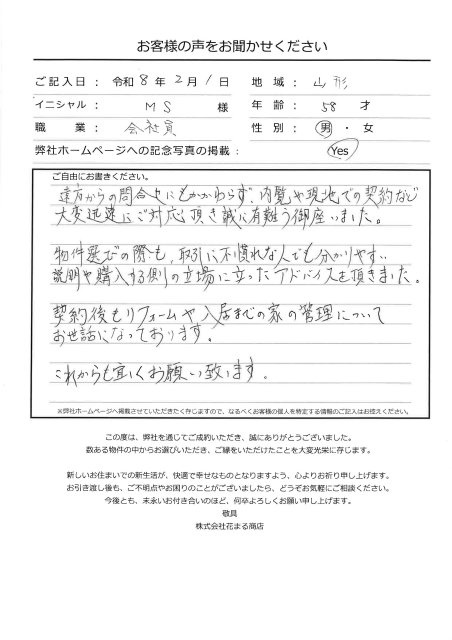 お客様の声をお聞かせください
ご記入日： 令和 8 年 2 月 1 日
地 域： 山形
イニシャル： M S 様
年 齢： 58 才
職 業： 会社員
性 別： 男 ・ 女
弊社ホームページへの記念写真の掲載： Yes
ご自由にお書きください。
遠方からの問合せにもかかわらず、内覧や現地での契約など
大変迅速にご対応頂き誠に有難う御座いました。
物件選びの際も、取引に不慣れな人でも分かりやすい
説明や購入する側の立場に立ったアドバイスを頂きました。
契約後もリフォームや入居までの家の管理について
お世話になっております。
これからも宜しくお願い致します。
※弊社ホームページへ掲載させていただきたく存じますので、なるべくお客様の個人を特定する情報のご記入はお控えください。
この度は、弊社を通じてご成約いただき、誠にありがとうございました。
数ある物件の中からお選びいただき、ご縁をいただけたことを大変光栄に存じます。
新しいお住まいでの新生活が、快適で幸せなものとなりますよう、心よりお祈り申し上げます。
お引き渡し後も、ご不明点やお困りのことがございましたら、どうぞお気軽にご相談ください。
今後とも、末永いお付き合いのほど、何卒よろしくお願い申し上げます。
敬具
株式会社花まる商店